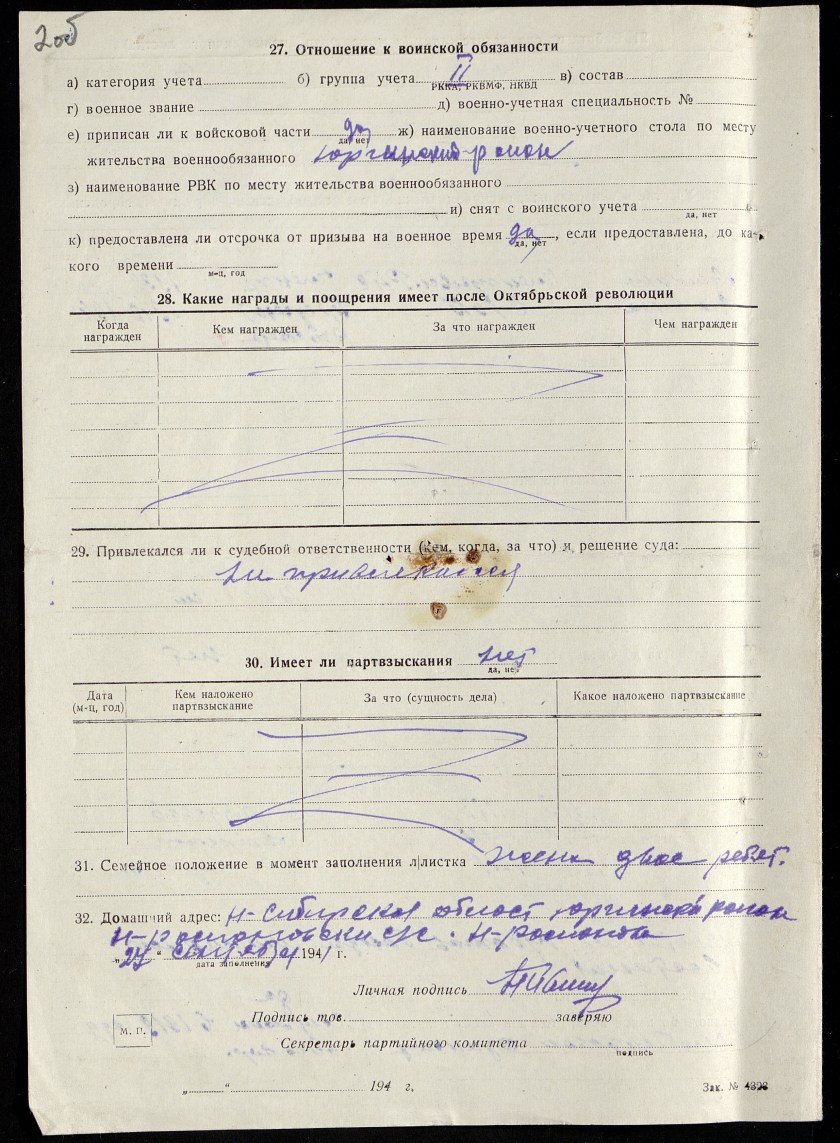 2об
27. Отношение к воинской обязанности
а) категория учета б) группа учета II в) состав
РККА, РКВМФ, НКВД
г) военное звание д) военно-учетная специальность №
е) приписан ли к войсковой части да ж) наименование военно-учетного стола по месту
да, нет
жительства военнообязанного Юргинский район
з) наименование РВК по месту жительства военнообязанного
и) снят с воинского учета
да, нет
к) предоставлена ли отсрочка от призыва на военное время да, если предоставлена, до ка-
да, нет
кого времени
м-ц, год
28. Какие награды и поощрения имеет после Октябрьской революции
Когда награжден Кем награжден За что награжден Чем награжден
29. Привлекался ли к судебной ответственности (кем, когда, за что) и, решение суда:
не привлекался
30. Имеет ли партвзыскания нет
да, нет
Дата (м-ц, год) Кем наложено партвзыскание За что (сущность дела) Какое наложено партвзыскание
31. Семейное положение в момент заполнения л/листка жена двое ребят.
32. Домашний адрес: Н-Сибирская област юргинский район
Н-романовски с/с. Н-романовка
"27" сентября 1941 г.
дата заполнения
Личная подпись
Подпись тов. заверяю
М. П.
Секретарь партийного комитета
подпись
„ “ 194 г.
Зак. №